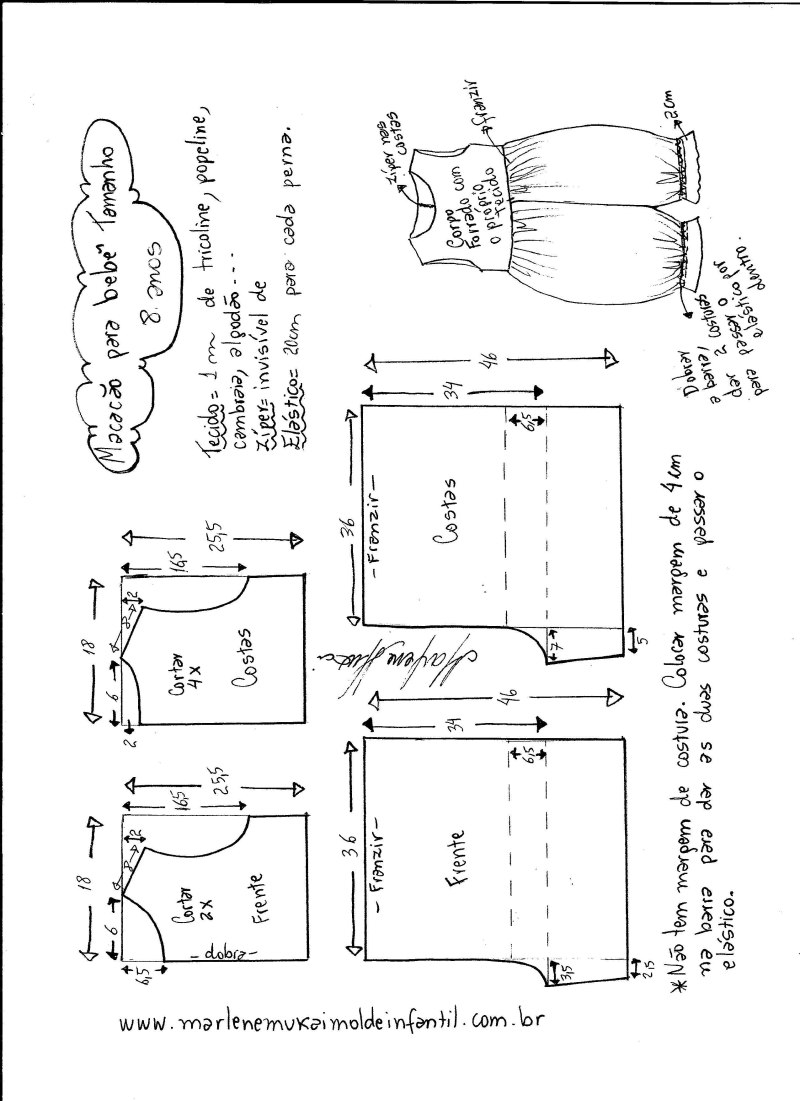 Macacão para bebê Tamanho
8 anos
Tecido = 1 m de tricoline, popeline,
cambraia, algodão...
Zíper = invisível de
Elástico = 20cm para cada perna.
Zíper nas
costas
franzir
Corpo
forrado com
o próprio
tecido
2cm
Dobrar
a barra/
dar 2 costuras
para passar o
elástico por
dentro.
18
6
8
2
6,5
16,5
25,5
Cortar
2x
Frente
-dobra-
18
6
8
2
2
16,5
25,5
Cortar
4x
Costas
36
- Franzir -
Frente
34
46
6,5
3,5
2,5
36
- Franzir -
Costas
34
46
6,5
7
5
*Não tem margem de costura. Colocar margem de 4cm
na barra para dar as duas costuras e passar o
elástico.
www.marlenemukaimoldeinfantil.com.br